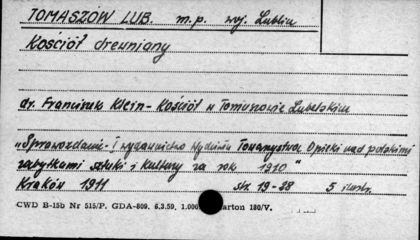 TOMASZÓW LUB. m.p. woj. Lublin
Kościół drewniany
dr. Franciszek Klein - Kościół w Tomaszowie Lubelskim
„Sprawozdanie i wydawnictwo Wydziału Towarzystwa Opieki nad polskimi
zabytkami sztuki i kultury za rok 1910"
Kraków 1911 str. 19-28 5 ilustr.
CWD B-15b Nr 515/P. GDA-809. 6.3.59. 1.000 karton 180/V.